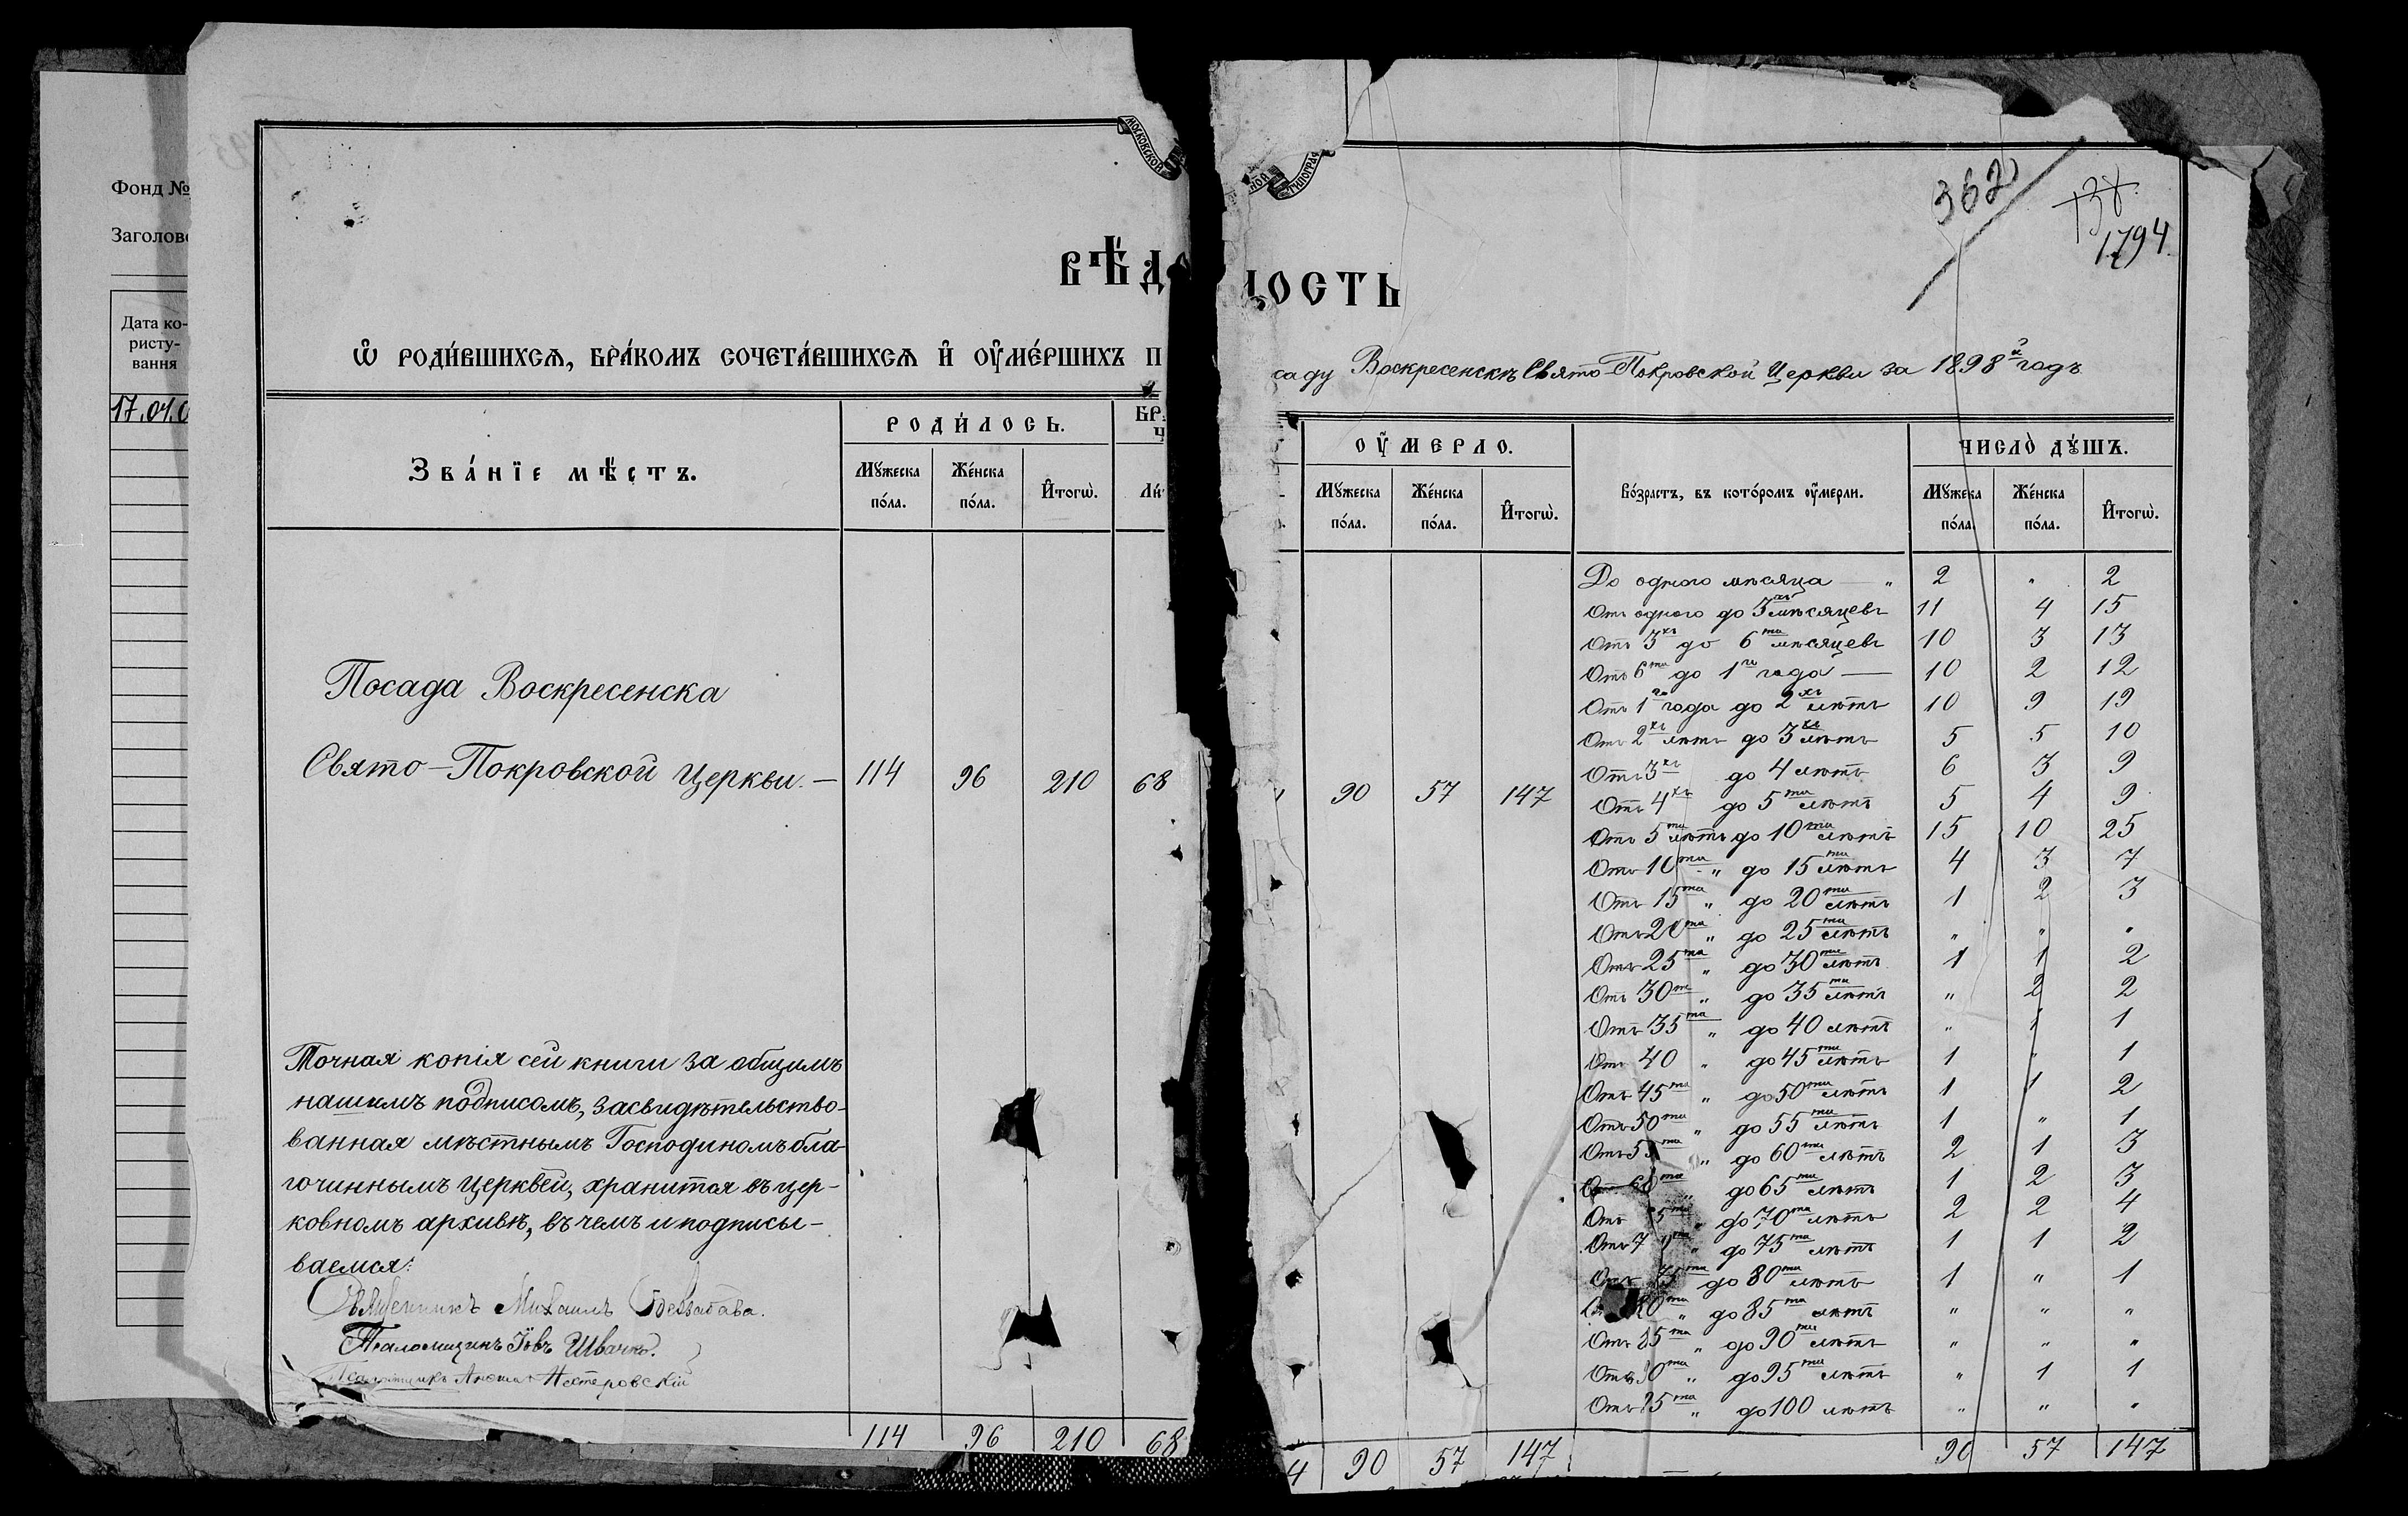 Фонд №
Заголово
Дата ко-
ристу-
вання
17.01.0
МОСКОВСКОЙ
ТИПОГРАФ
362
1794
ВѢДО
МОСТЬ
Ѡ РОДИ́ВШИХСѦ, БРА́КОМЪ СОЧЕТА́ВШИХСѦ И҆ ОУ҆МЕ́РШИХЪ П
саду Воскресенскъ Свято-Покровской Церкви за 1898й годъ
Зва́нїе мѣ́стъ.
РОДИ́ЛОСЬ.
Мꙋжеска по́ла.
Же́нска по́ла.
И҆тогѡ̀.
БРА
Ч
Ли
ОУ҆МЕРЛО.
Мꙋжеска по́ла.
Же́нска по́ла.
И҆тогѡ̀.
Во́зрастъ, въ кото́ромъ оу҆мерли.
ЧИСЛО̀ ДꙊШЪ.
Мꙋжеска по́ла.
Же́нска по́ла.
И҆тогѡ̀.
Посада Воскресенска
Свято-Покровской Церкви. — 114 96 210 68
90 57 147
До одного мѣсяца — „ 2 „ 2
Отъ одного до 3хъ мѣсяцевъ 11 4 15
Отъ 3хъ до 6ти мѣсяцевъ 10 3 13
Отъ 6ти до 1го года — 10 2 12
Отъ 1го года до 2хъ лѣтъ 10 9 19
Отъ 2хъ лѣтъ до 3хъ лѣтъ 5 5 10
Отъ 3хъ до 4 лѣтъ 6 3 9
Отъ 4хъ до 5ти лѣтъ 5 4 9
Отъ 5ти лѣтъ до 10ти лѣтъ 15 10 25
Отъ 10ти „ до 15ти лѣтъ 4 3 7
Отъ 15ти „ до 20ти лѣтъ 1 2 3
Отъ 20ти „ до 25ти лѣтъ „ „ „
Отъ 25ти „ до 30ти лѣтъ 1 1 2
Отъ 30ти „ до 35ти лѣтъ „ 2 2
Отъ 35ти „ до 40 лѣтъ „ 1 1
Отъ 40 „ до 45ти лѣтъ 1 „ 1
Отъ 45ти „ до 50ти лѣтъ 1 1 2
Отъ 50ти „ до 55ти лѣтъ 1 „ 1
Отъ 5 ти „ до 60ти лѣтъ 2 1 3
60ти „ до 65ти лѣтъ 1 2 3
Отъ 5ти „ до 70ти лѣтъ 2 2 4
Отъ 7 ти „ до 75ти лѣтъ 1 1 2
Отъ 75ти до 80ти лѣтъ 1 „ 1
80ти „ до 85ти лѣтъ „ „ „
Отъ 85ти „ до 90ти лѣтъ „ „ „
Отъ 90ти „ до 95ти лѣтъ „ 1 1
Отъ 95ти „ до 100 лѣтъ „ „ „
Точная копія сей книги за общимъ
нашимъ подписомъ, засвидѣтельство-
ванная мѣстнымъ Господиномъ бла-
гочиннымъ Церквей, хранится въ цер-
ковномъ архивѣ, въ чемъ и подписы-
ваемся:
Священникъ Михаилъ
Псаломщикъ Іовъ Швачко.
Псаломщикъ Нестеровскій
114 96 210 68
4 90 57 147 90 57 147